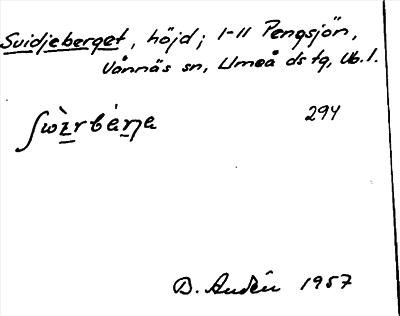 Svidjeberget, höjd; 1-11 Pengsjön,
Vännäs sn, Umeå dstg, Vb.l.
294
B. Audén 1957